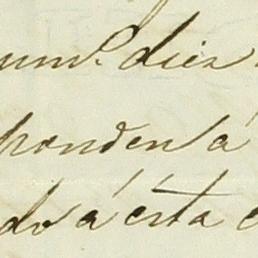 num.º diez
ponden á
do á esta